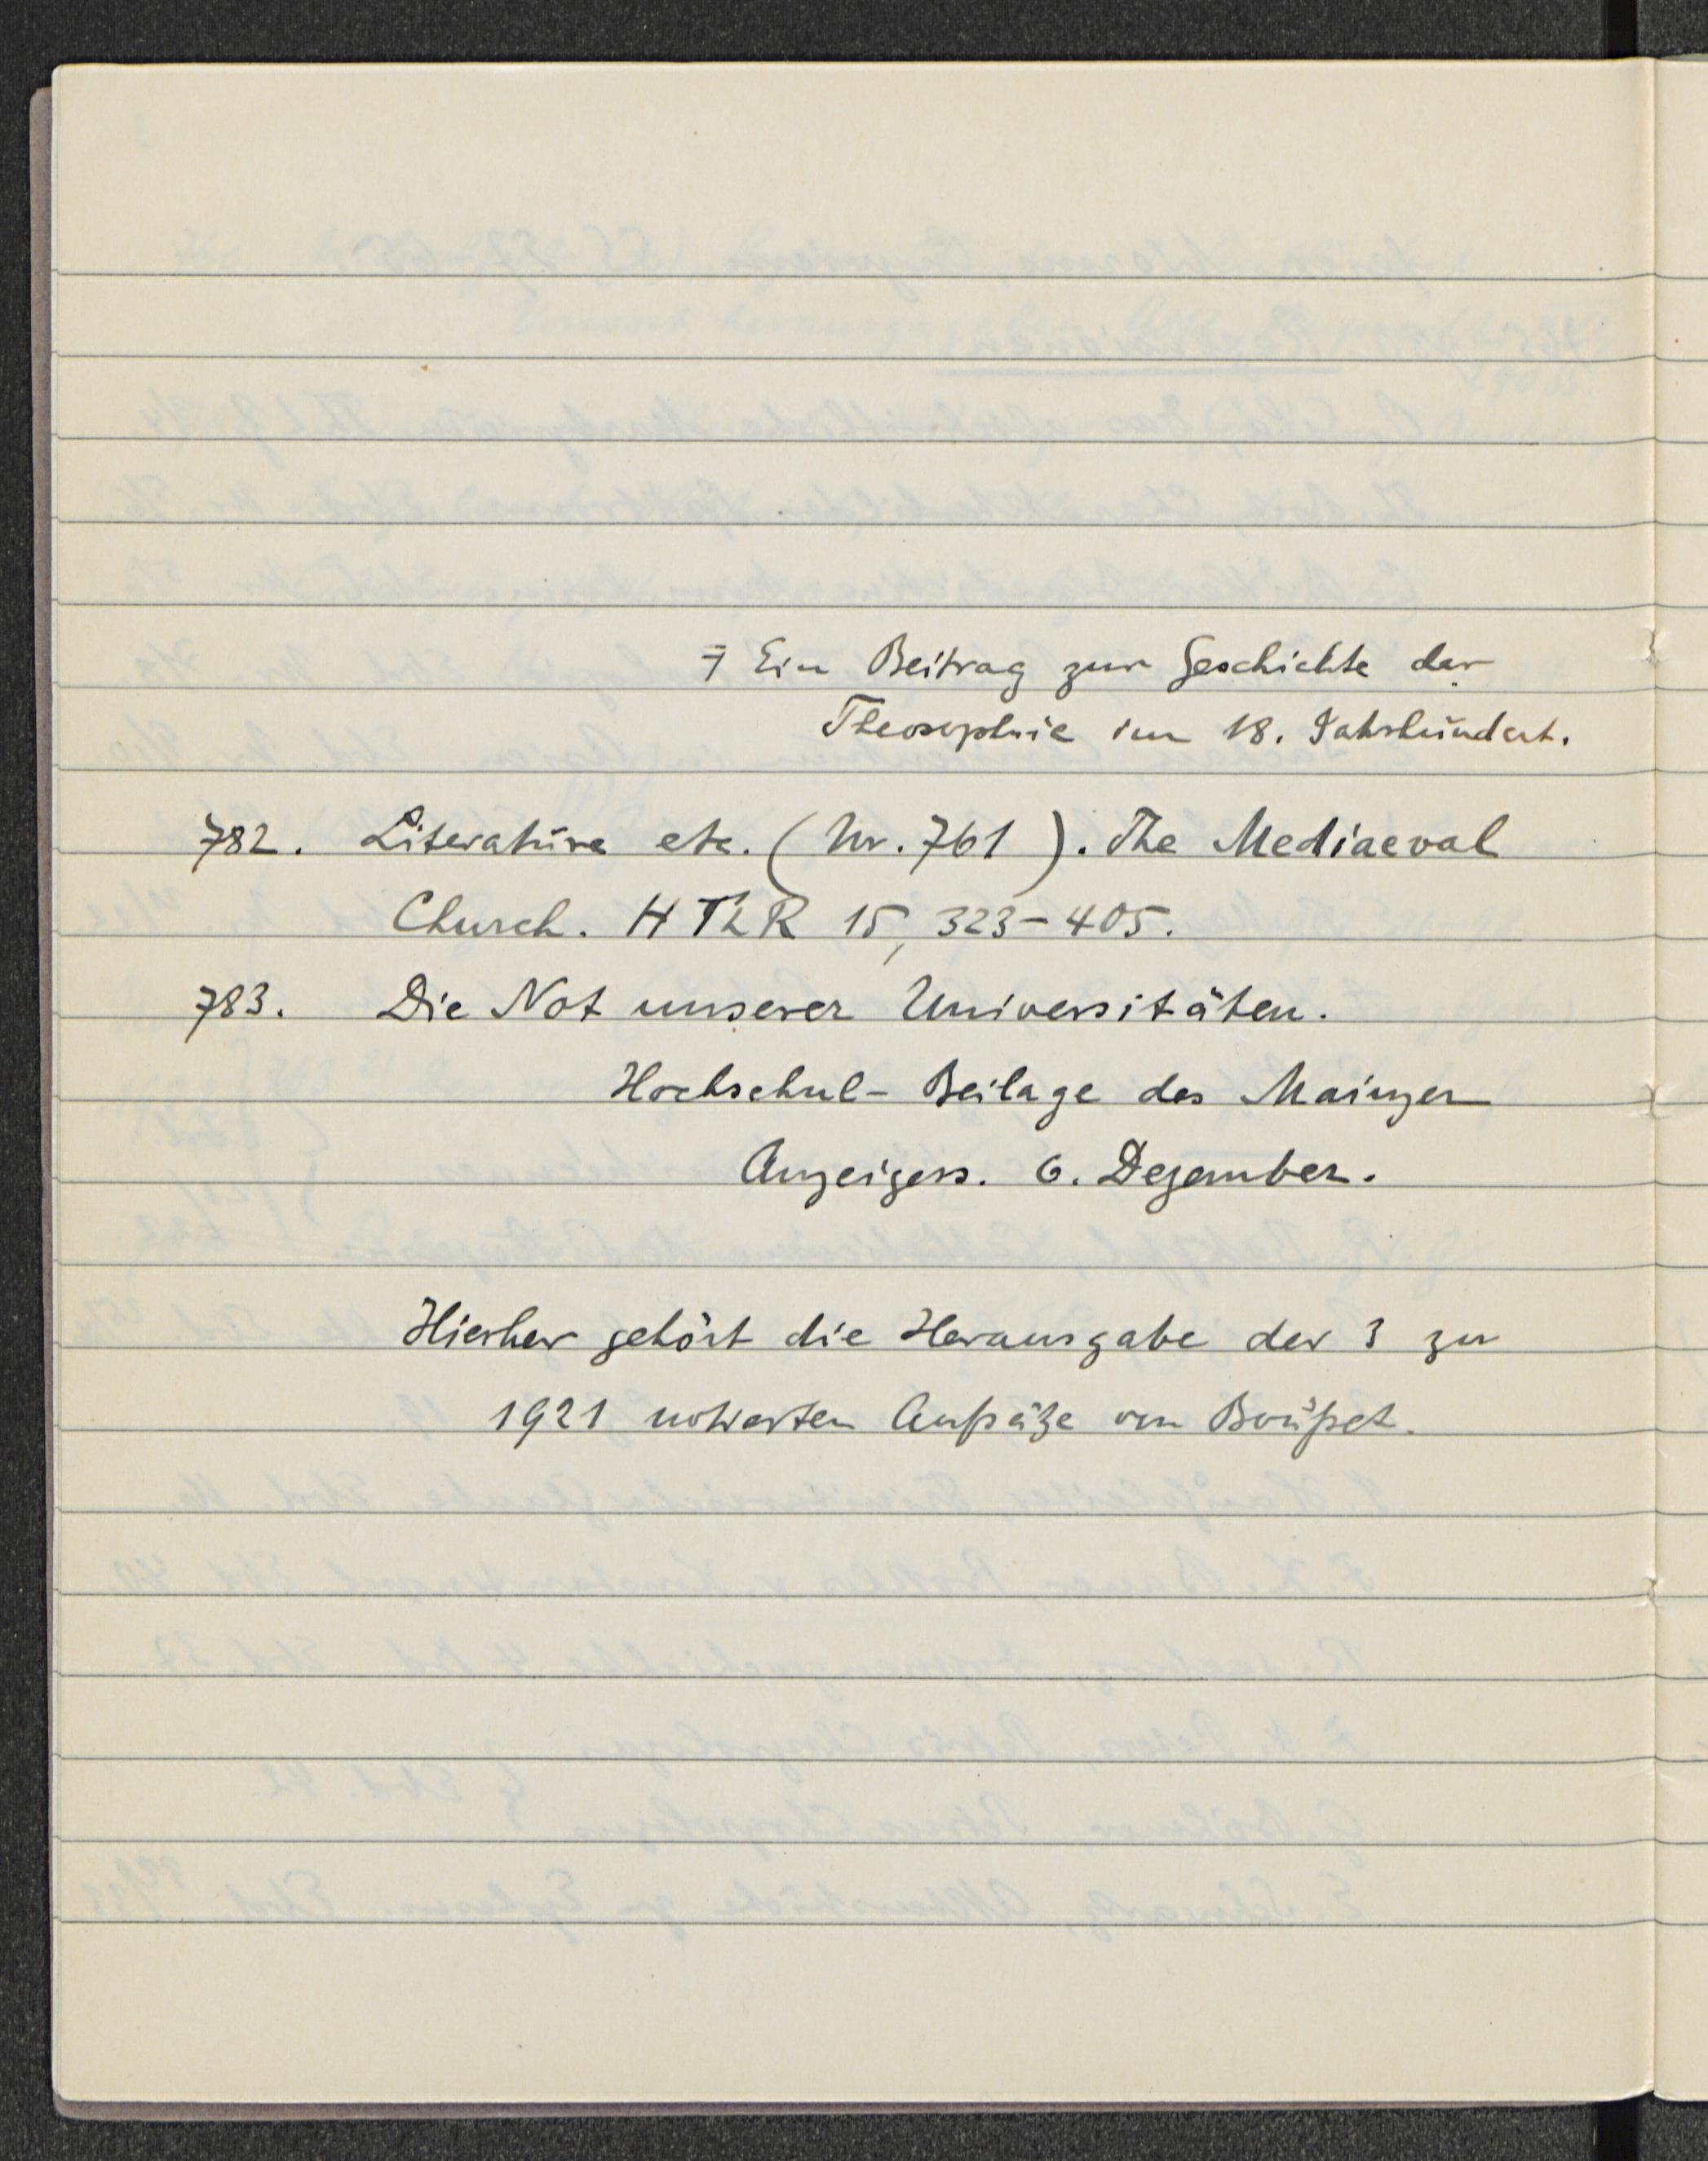 Ein Beitrag zur Geschichte der
Theosophie im 18. Jahrhundert.
782. Literature etc. (Nr. 761). The Mediaeval
Church. HThR 15, 323-405.
783. Die Not unserer Universitäten.
Hochschul-Beilage des Mainzer
Anzeigers. 6. Dezember.
Hierher gehört die Herausgabe der 3 zu
1921 notierten Aufsätze von Boußet.